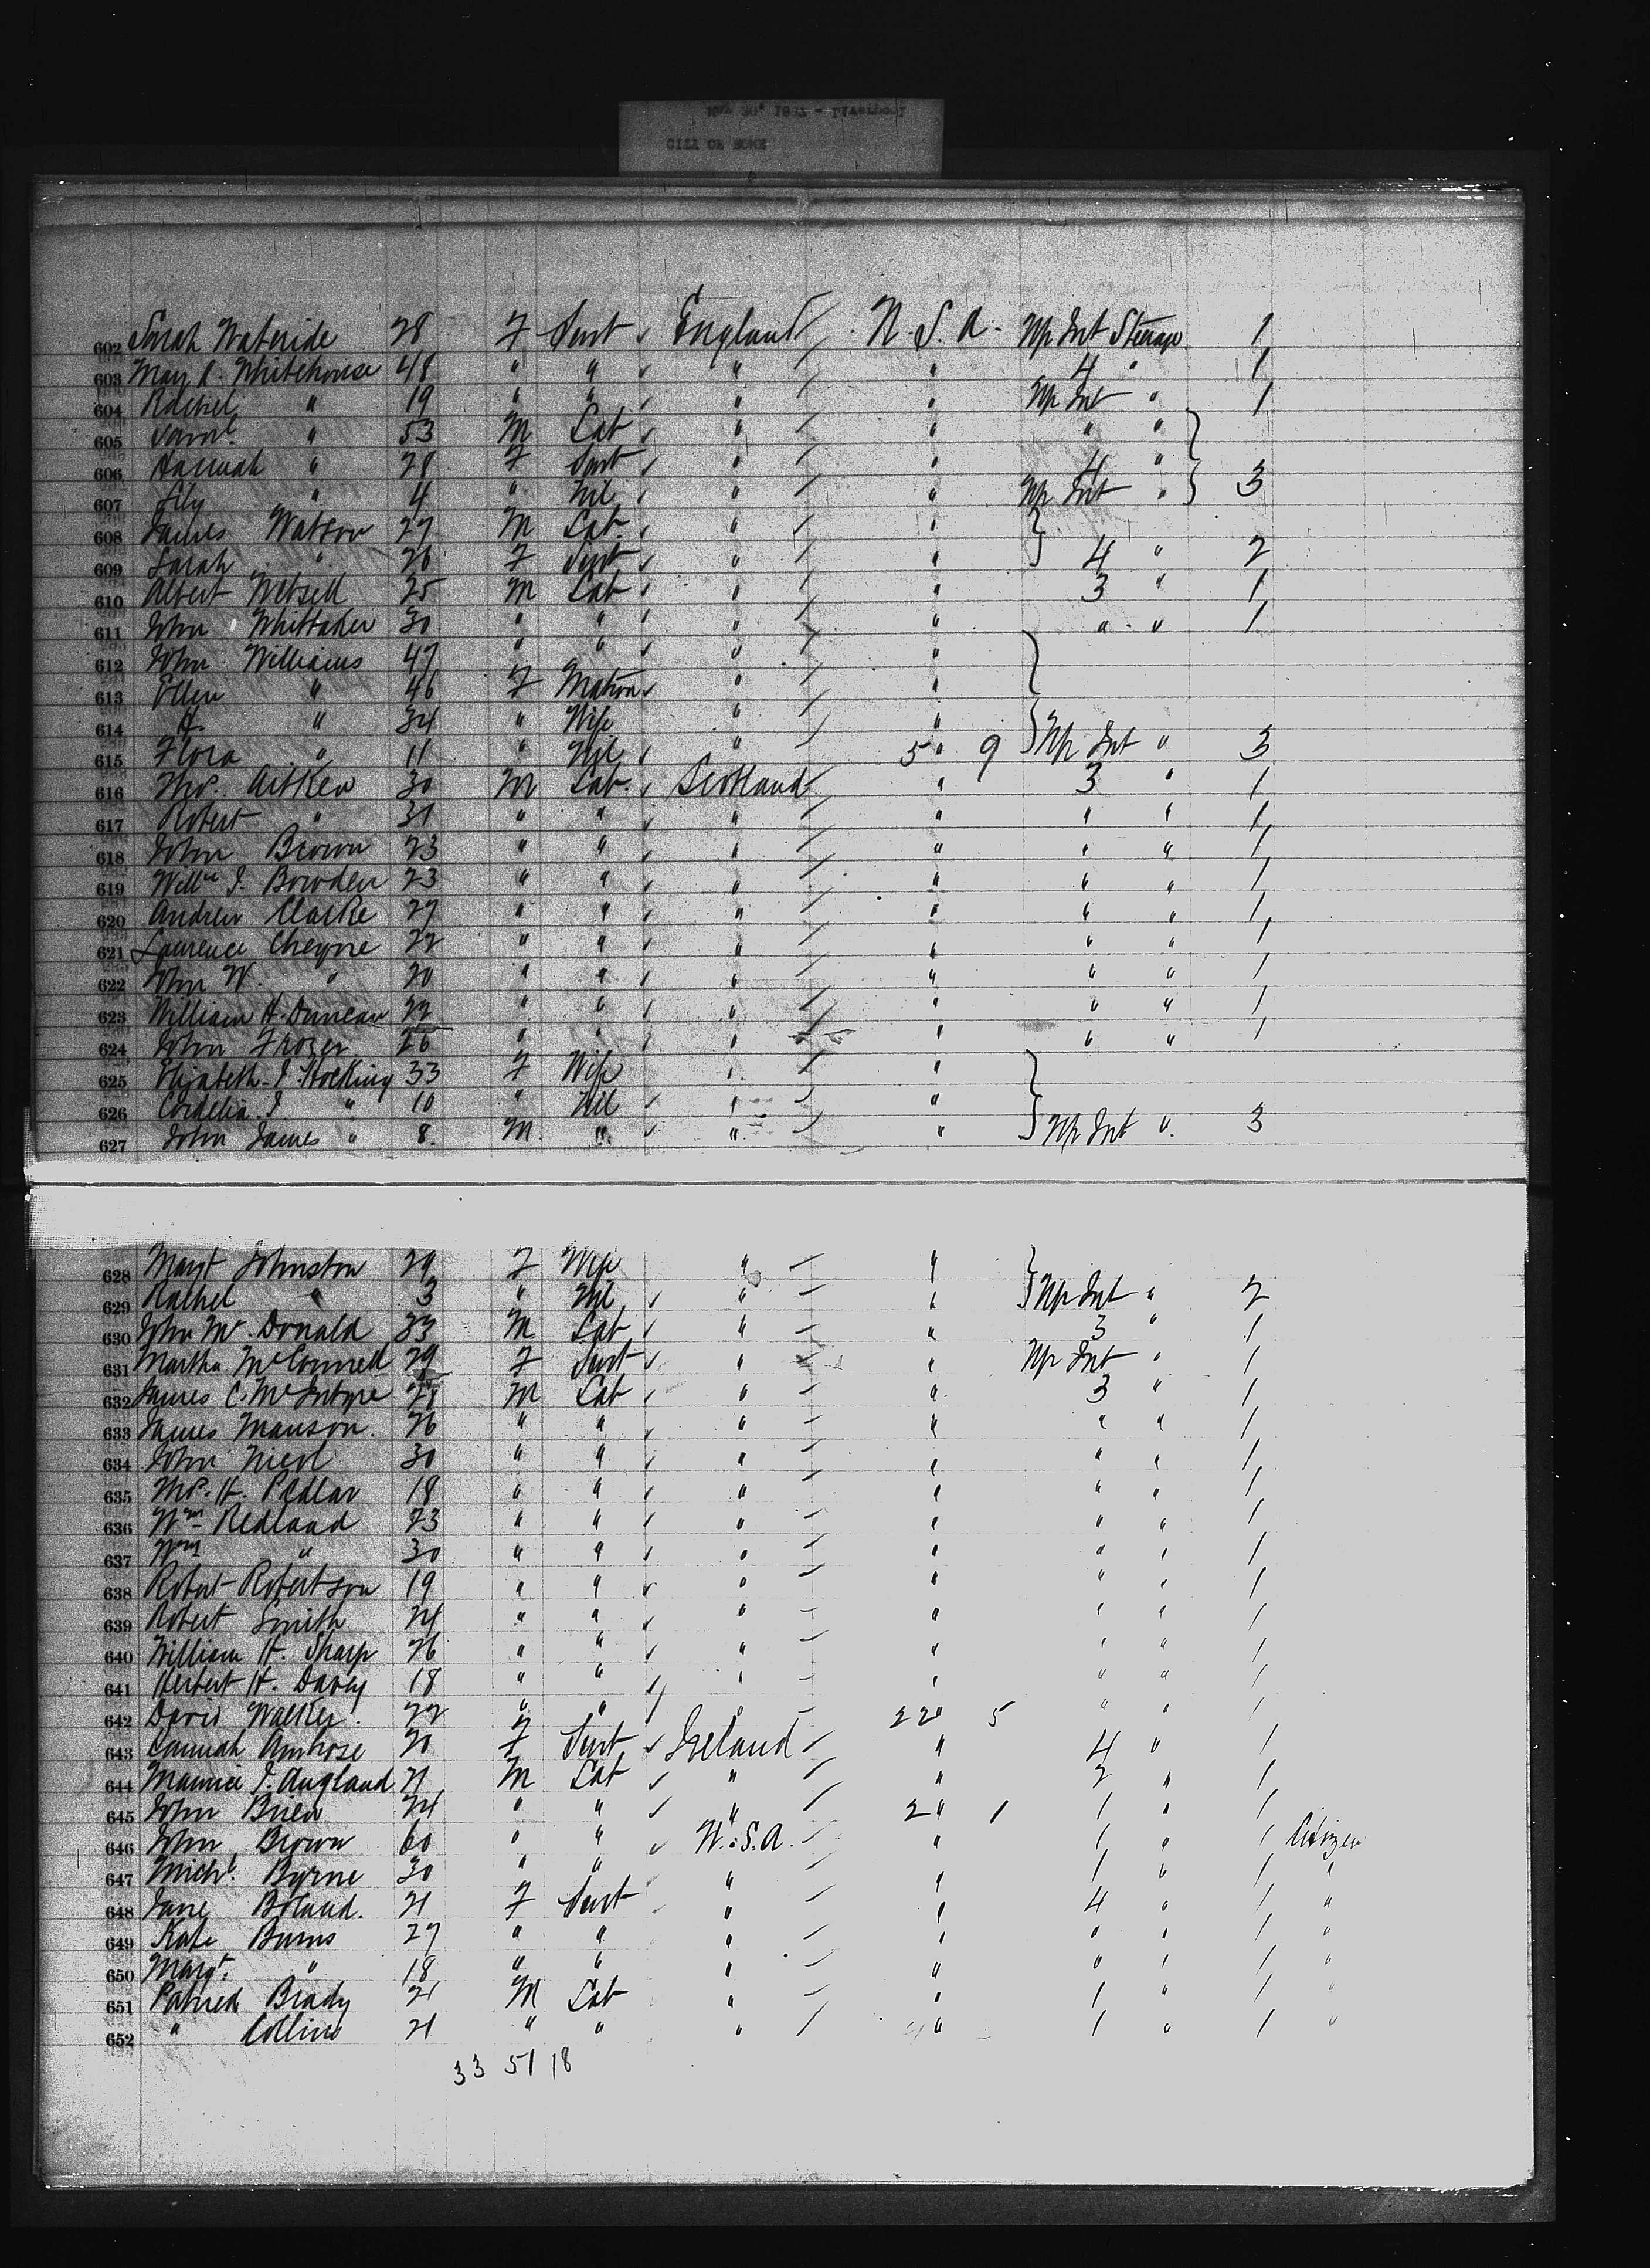 CITY OF ROME
602 Sarah Wateride 28 F Servt England U.S.A. Up Int Steerage 1
603 Mary A. Whitehouse 48 " " " " 4 " 1
604 Rachel " 19 " " " " Up Int " 1
605 Saml. " 53 M Lab " " " "
606 Hannah " 28 F Servt " " 4 "
607 Lily " 4 " Nil " " Up Int " 3
608 James Watson 27 M Lab. " "
609 Sarah " 26 F Servt " " 4 " 2
610 Albert 25 M Lab " " 3 " 1
611 John Whittaker 30 " " " " " " 1
612 John Williams 47 " " " "
613 Ellen " 46 F Matron " "
614 H. " 34 " Wife " "
615 Flora " 11 " Nil " 5 " 9 Up Int " 3
616 Thos. Aitken 30 M Lab. Scotland " 3 " 1
617 Robert " 31 " " " " " " 1
618 John Brown 23 " " " " " " 1
619 Willm J. Bowden 23 " " " " " " 1
620 Andrew Clarke 27 " " " " " " 1
621 Laurence Cheyne 22 " " " " " " 1
622 John W. " 20 " " " " " " 1
623 William H. Duncan 22 " " " " " " 1
624 John Frozer 26 " " " " " " 1
625 Elizabeth J. Hocking 33 F Wife " "
626 Cordelia J " 10 " Nil " "
627 John James " 8 M " " " Up Int " 3
628 Margt Johnston 29 F Wife " "
629 Rachel " 3 " Nil " " Up Int " 2
630 John Mc. Donald 23 M Lab " " 3 " 1
631 Martha McConnell 29 F Servt " " Up Int " 1
632 James C. McIntyre 28 M Lab " " 3 " 1
633 James Manson. 26 " " " " " " 1
634 John Nicol 30 " " " " " " 1
635 Thos. H. Pedlar 18 " " " " " " 1
636 Wm Redland 23 " " " " " " 1
637 Wm " 30 " " " " " " 1
638 Robert Robertson 19 " " " " " " 1
639 Robert Smith 24 " " " " " " 1
640 William H. Sharp 26 " " " " " " 1
641 Herbert H. Davey 18 " " " " " " 1
642 David Walker. 22 " " " 22 " 5 " " 1
643 Hannah Ambrose 20 F Servt Ireland " 4 " 1
644 Maurice J. Angland 21 M Lab " " 2 " 1
645 John Brien 24 " " " 2 " 1 1 " 1
646 John Brown 60 " " U.S.A. " 1 " 1 Citizen
647 Michl. Byrne 30 " " " " 1 " 1 "
648 Jane Boland. 21 F Servt " " 4 " 1 "
649 Kate Burns 27 " " " " " " 1 "
650 Margt. " 18 " " " " " " 1 "
651 Patrick Brady 21 M Lab " " 1 " 1 "
652 " Collins 21 " " " " 1 " 1 "
33 51 18